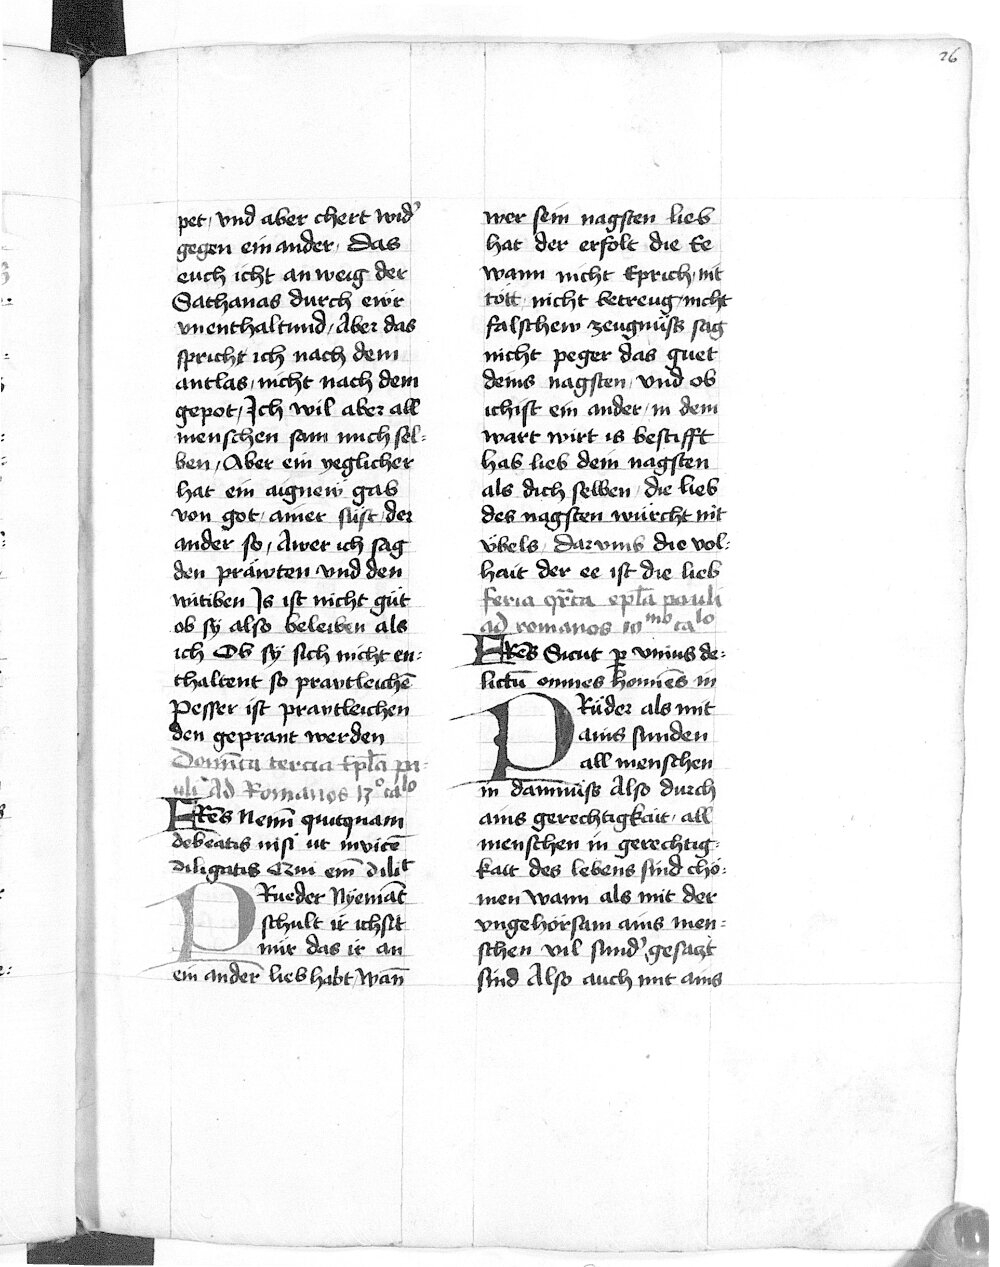 26
pet / vnd aber chert wid͛
gegen ein ander / Das
euch icht an weig der
Sathanas durch ewr
vnenthaltund / Aber das
sprich ich nach dem
antlas / nicht nach dem
gepot / Ich wil aber all
menschen sam mich sel=
ben / Aber ein yeglicher
hat ein aignew gab
von got / ainer süst / der
ander so / Awer ich sag
den präwten vnd den
witiben Is ist nicht güt
ob sy also beleiben als
ich Ob sy sich nicht en=
thaltent so prawtleichē
Pesser ist prawtleichen
den geprant werden
Domīca tercia Epl̄a pa=
uli Ad Romanos 13º calo
FRēs Nemī quitquam
debeatis nisi ut invicē
diligatis Qui em̄ dilit
PRueder Nyemāt
schult ir ichsit
mir das ir an
ein ander lieb habt / wān
wer sein nagsten lieb
hat der erfolt die Ee
wann nicht Eprich / nit
tött / nicht betreug / nicht
falschew zeugnüss sag
nicht peger das guet
deins nagsten / vnd ob
ichist ein ander / in dem
wart wirt is bestifft
hab lieb dein nagsten
als dich selben / die lieb
des nagsten würcht nit
übels / Darvmb die vol=
hait der ee ist die lieb
feria qr̄ta epl̄a pauli
ad romanos 10mo calo
FRēs Sicut ꝑ vnius de=
lictū omnes homiēs in
PRüder als mit
ains sunden
all menschen
in damnüss Also durch
ains gerechtigkait / all
menschen in gerechtig=
kait des lebens sind cho=
men wann als mit der
vngehorsam ains men=
schen vil sund͛ gesagt
sind Also auch mit ains